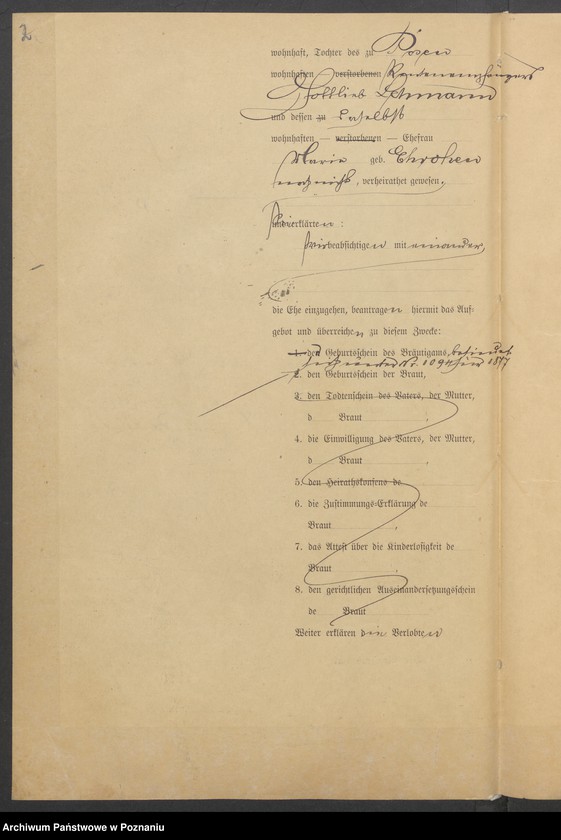 2
wohnhaft, Tochter des zu Posen
wohnhaften verstorbenen Rentenempfängers
Gottlieb Lehmann
und dessen zu daselbst
wohnhaften — verstorbenen — Ehefrau
Marie geb.
noch nicht, verheirathet gewesen.
und erklärten:
Wir beabsichtigen mit einander,
die Ehe einzugehen, beantragen hiermit das Auf-
gebot und überreichen zu diesem Zwecke:
1. den Geburtsschein des Bräutigams, befindet
No. 1094 1877
2. den Geburtsschein der Braut,
3. den Todtenschein des Vaters, der Mutter,
d Braut ,
4. die Einwilligung des Vaters, der Mutter,
d Braut ,
5. den Heirathskonsens de
6. die Zustimmungs-Erklärung de
Braut ,
7. das Attest über die Kinderlosigkeit de
Braut ,
8. den gerichtlichen Auseinandersetzungsschein
de Braut
Weiter erklären die Verlobten
Archiwum Państwowe w Poznaniu